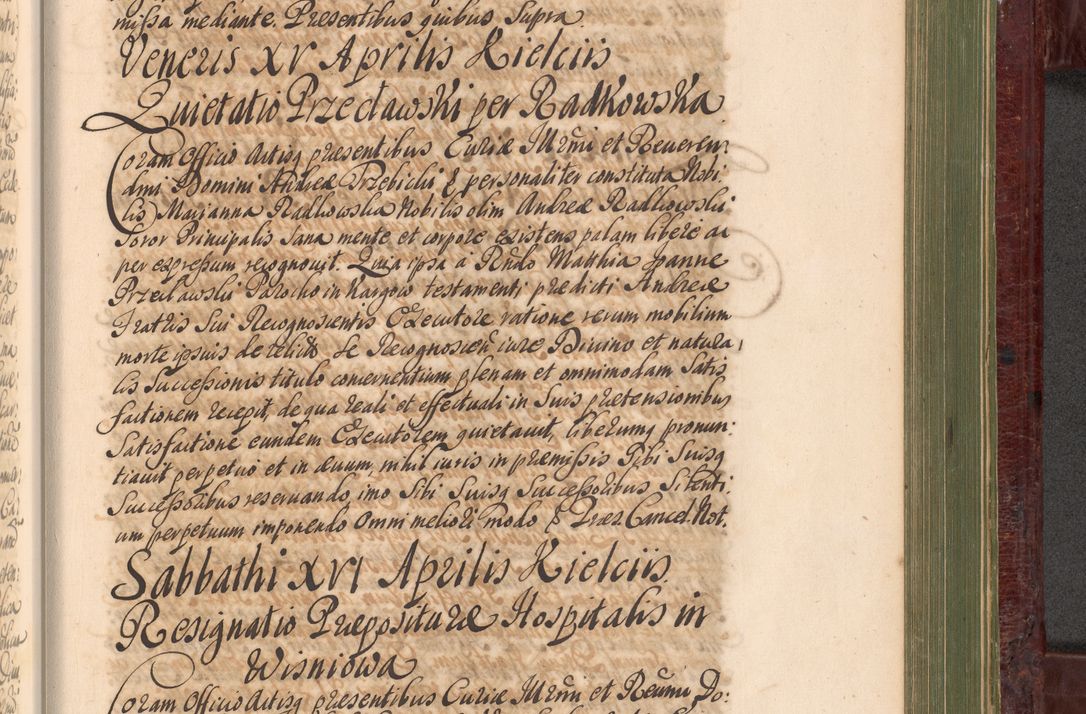 missa mediante. Presentibus quibus Supra
Veneris XV Aprilis Kielciis
Quietatio Przecławski per Radkowska
Coram Officio Actisq præsentibus Curiæ Illrmi et Reveren:
dmi Domini Andreæ Trzebicki & personaliter constituta Nobi:
lis Marianna Radkowska Nobilis olim Andreæ Radkowski
Soror Principalis sana mente et corpore existens palam libere ac
per expressum recognovit. Quia ipsa a Rndo Matthia Joanne
Przecławski Parocho in Kargow testamenti prædicti Andreæ
Fratris Sui Recognoscentis Executore ratione rerum mobilium
morte ipsius derelicto Se Recognoscen iure Divino et natura
lis Successionis titulo concernentium plenam et omnimodam Satis
factionem recepit, de qua reali et effectuali in Suis prætensionibus
Satisfactione eundem Executorem quietavit, liberumq pronun:
tiavit perpetuo et in ævum, nihil iuris in præmissis Sibi Suisq
Successoribus reservando imo Sibi Suisq Successoribus Silenti:
um perpetuum imponendo Omni meliori modo & Præs Cancel. Not.
Sabbathi XVI Aprilis Kielciis
Resignatio Præposituræ Hospitalis in
Wisniowa
Coram Officio Actisq præsentibus Curiæ Illrmi et Reumi Do: